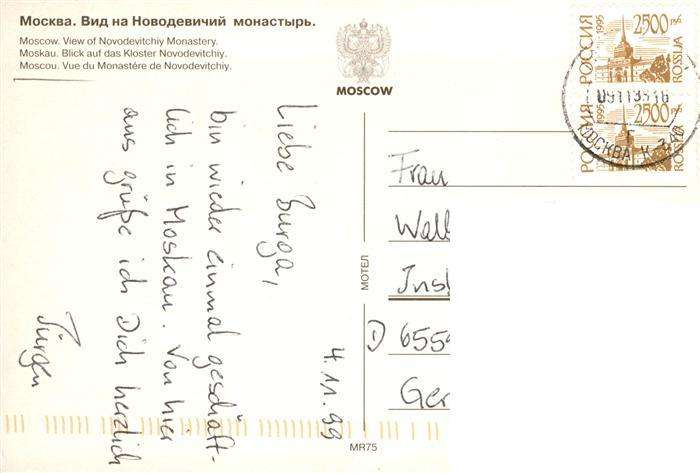 Москва. Вид на Новодевичий монастырь.
Moscow. View of Novodevitchiy Monastery.
Moskau. Blick auf das Kloster Novodevitchiy.
Moscou. Vue du Monastére de Novodevitçhiy.
MOSCOW
РОССИЯ 1995 2500 руб. ROSSIJA
РОССИЯ 1995 2500 руб. ROSSIJA
МОСКВА
4.11.99
Liebe Burga,
bin wieder einmal geschäft-
lich in Moskau. Von hier
aus grüße ich Dich herzlich
Jürgen
МОТЕЛ
Frau
Wall
Inst
D 6559
Ger
MR75